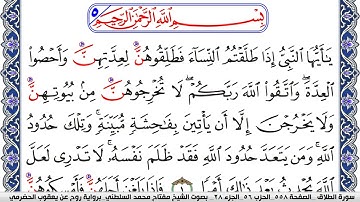 بِسْمِ اللَّهِ الرَّحْمَٰنِ الرَّحِيمِ
يَٰٓأَيُّهَا ٱلنَّبِىُّ إِذَا طَلَّقْتُمُ ٱلنِّسَآءَ فَطَلِّقُوهُنَّ لِعِدَّتِهِنَّ وَأَحْصُوا۟
ٱلْعِدَّةَ ۖ وَٱتَّقُوا۟ ٱللَّهَ رَبَّكُمْ ۖ لَا تُخْرِجُوهُنَّ مِنۢ بُيُوتِهِنَّ
وَلَا يَخْرُجْنَ إِلَّآ أَن يَأْتِينَ بِفَٰحِشَةٍ مُّبَيِّنَةٍ ۚ وَتِلْكَ حُدُودُ
ٱللَّهِ ۚ وَمَن يَتَعَدَّ حُدُودَ ٱللَّهِ فَقَدْ ظَلَمَ نَفْسَهُۥ ۚ لَا تَدْرِى لَعَلَّ
ٱللَّهَ يُحْدِثُ بَعْدَ ذَٰلِكَ أَمْرًا فَإِذَا بَلَغْنَ أَجَلَهُنَّ فَأَمْسِكُوهُنَّ
سورة الطلاق الصفحة ٥٥٨ الحزب ٥٦ الجزء ٢٨ بصوت الشيخ مفتاح محمد السلطني برواية روح عن يعقوب الحضرمي